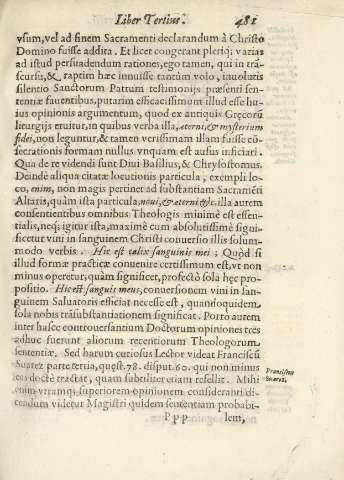 Liber Tertius. 481
vsum, vel ad finem Sacramenti declarandum à Christo
Domino fuisse addita. Et licet congerant pleriq; varias
ad istud persuadendum rationes, ego tamen, qui in trã-
scursu, & raptim hæc innuisse tantùm volo, inuolutis
silentio Sanctorum Patrum testimonijs præsenti sen-
tentiæ fauentibus, putarim efficacissimum illud esse hu-
ius opinionis argumentum, quod ex antiquis Grecorũ
liturgijs eruitur, in quibus verba illa, æterni, & mysterium
fidei, non leguntur, & tamen verissimam illam fuisse cõ-
secrationis formam nullus vnquam est ausus inficiari.
Qua de re videndi sunt Diui Basilius, & Chrysostomus.
Deindè aliqua citatæ locutionis particula, exempli lo-
co, enim, non magis pertinet ad substantiam Sacramẽti
Altaris, quàm ista particula, noui, & æterni &c. illa autem
consentientibus omnibus Theologis minimè est essen-
tialis, neq; igitur ista, maximè cum absolutissimè signi-
ficetur vini in sanguinem Christi conuersio illis solum-
modo verbis. Hic est calix sanguinis mei; Quòd si
illud formæ practicæ conuenire certissimum est, vt non
minus operetur, quàm significet, profectò sola hęc pro-
positio. Hic est sanguis meus, conuersionem vini in san-
guinem Saluatoris efficiat necesse est, quandoquidem
sola nobis trãsubstantiationem significat. Porro autem
inter hasce controuersantium Doctorum opiniones tres
adhuc fuerunt aliorum recentiorum Theologorum
sententiæ. Sed harum curiosus Lector videat Franciscũ
Suarez parte tertia, quęst. 78. disput. 60. qui non minus
eas doctè tractat, quam subtiliter etiam refellit. Mihi
Francisco
Suarez.
enim vtramq; superiorem opinionem consideranti di-
cendum videtur Magistri quidem sententiam probabi-
Ppp lem,